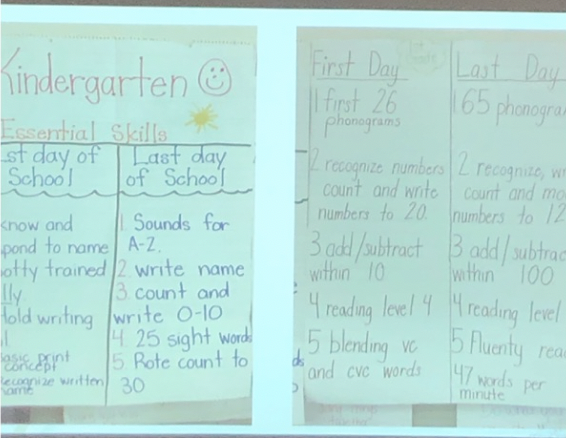 Kindergarten
Essential Skills
st day of
School
know and
pond to name
otty trained
lly
Hold writing
basic print
concept
recognize written
name
Last day
of School
1 Sounds for
A-Z.
2. write name
3. count and
write 0-10
4. 25 sight words
5. Rote count to
30
First Day
1 first 26
phonograms
2 recognize numbers
count and write
numbers to 20.
3 add/subtract
within 10
4 reading level 4
5 blending vc
and cvc words
Last Day
1 65 phonogra
2 recognize, wr
count and mo
numbers to 12
3 add/subtrac
within 100
4 reading level
5 fluently rea
47 words per
minute